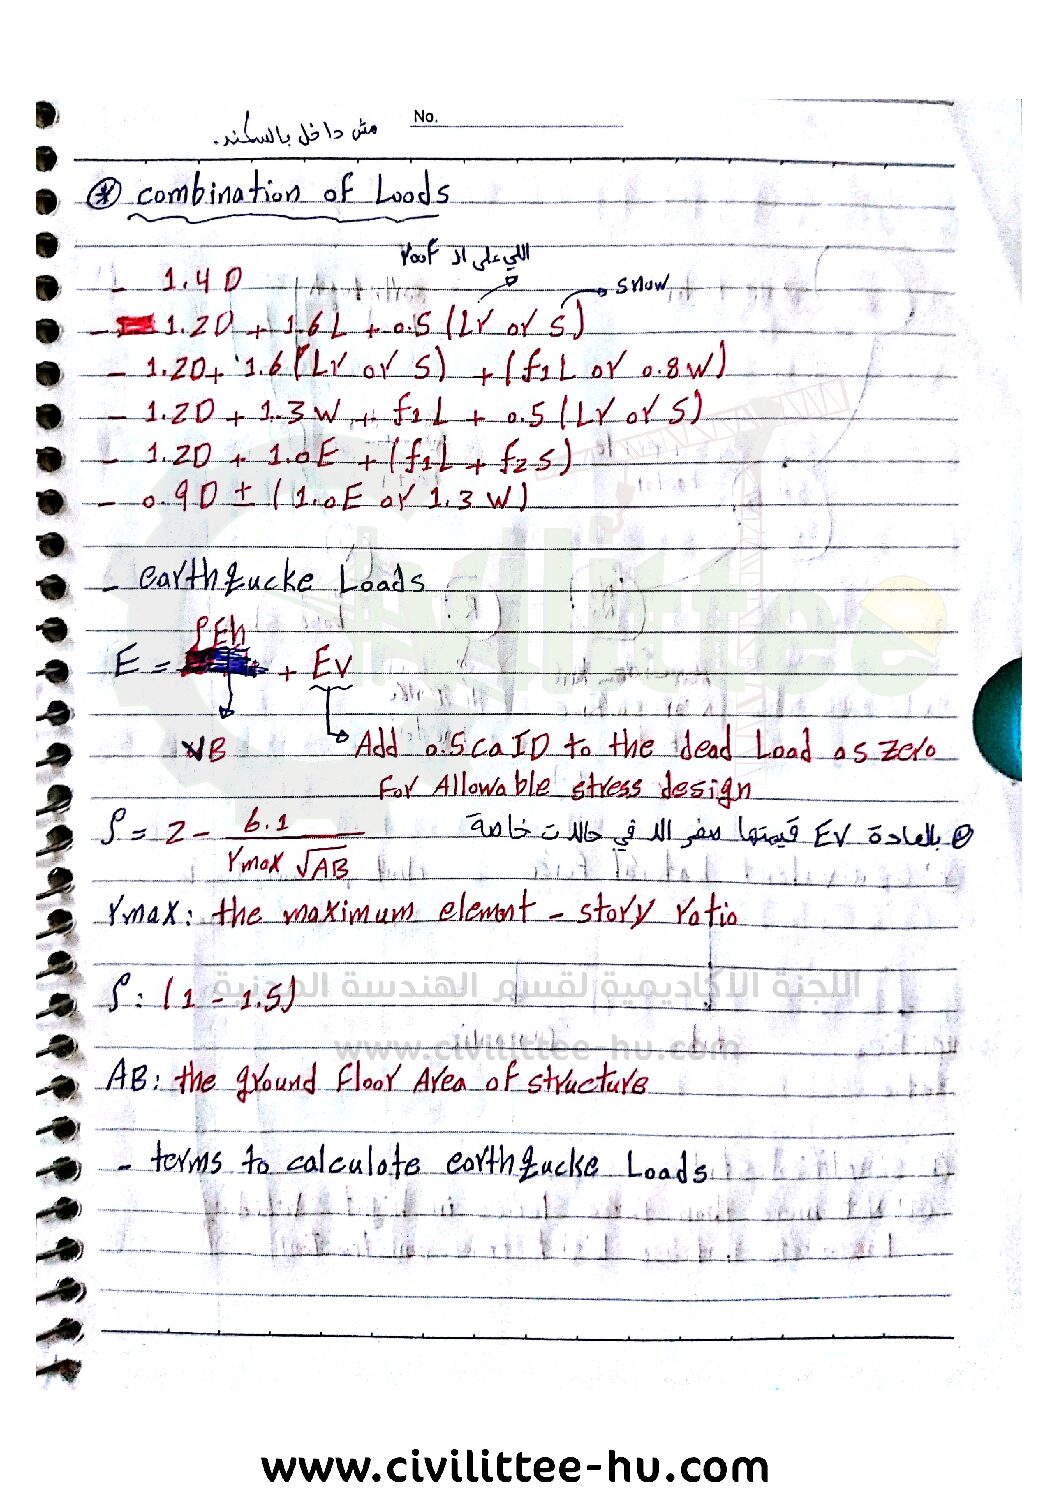 No.
مش داخل بالسكند.
* combination of Loads
اللي على الـ roof
- 1.4D
snow
- 1.2D + 1.6L + 0.5 (Lr or S)
- 1.2D + 1.6 (Lr or S) + (f1L or 0.8W)
- 1.2D + 1.3W + f1L + 0.5 (Lr or S)
- 1.2D + 1.0E + (f1L + f2S)
- 0.9D ± (1.0E or 1.3W)
- earthqucke Loads
E = ρEh + Ev
VB
Add 0.5CaID to the dead Load as zero
For Allowable stress design
ρ = 2 - 6.1 / rmax √AB
بالعادة Ev قيمتها صفر الا في حالات خاصة
rmax: the maximum elemnt - story ratio
اللجنة الأكاديمية لقسم الهندسة المدنية
ρ: (1 - 1.5)
www.civilittee-hu.com
AB: the ground Floor Area of structure
- terms to calculate earthqucke Loads
Civilittee
www.civilittee-hu.com